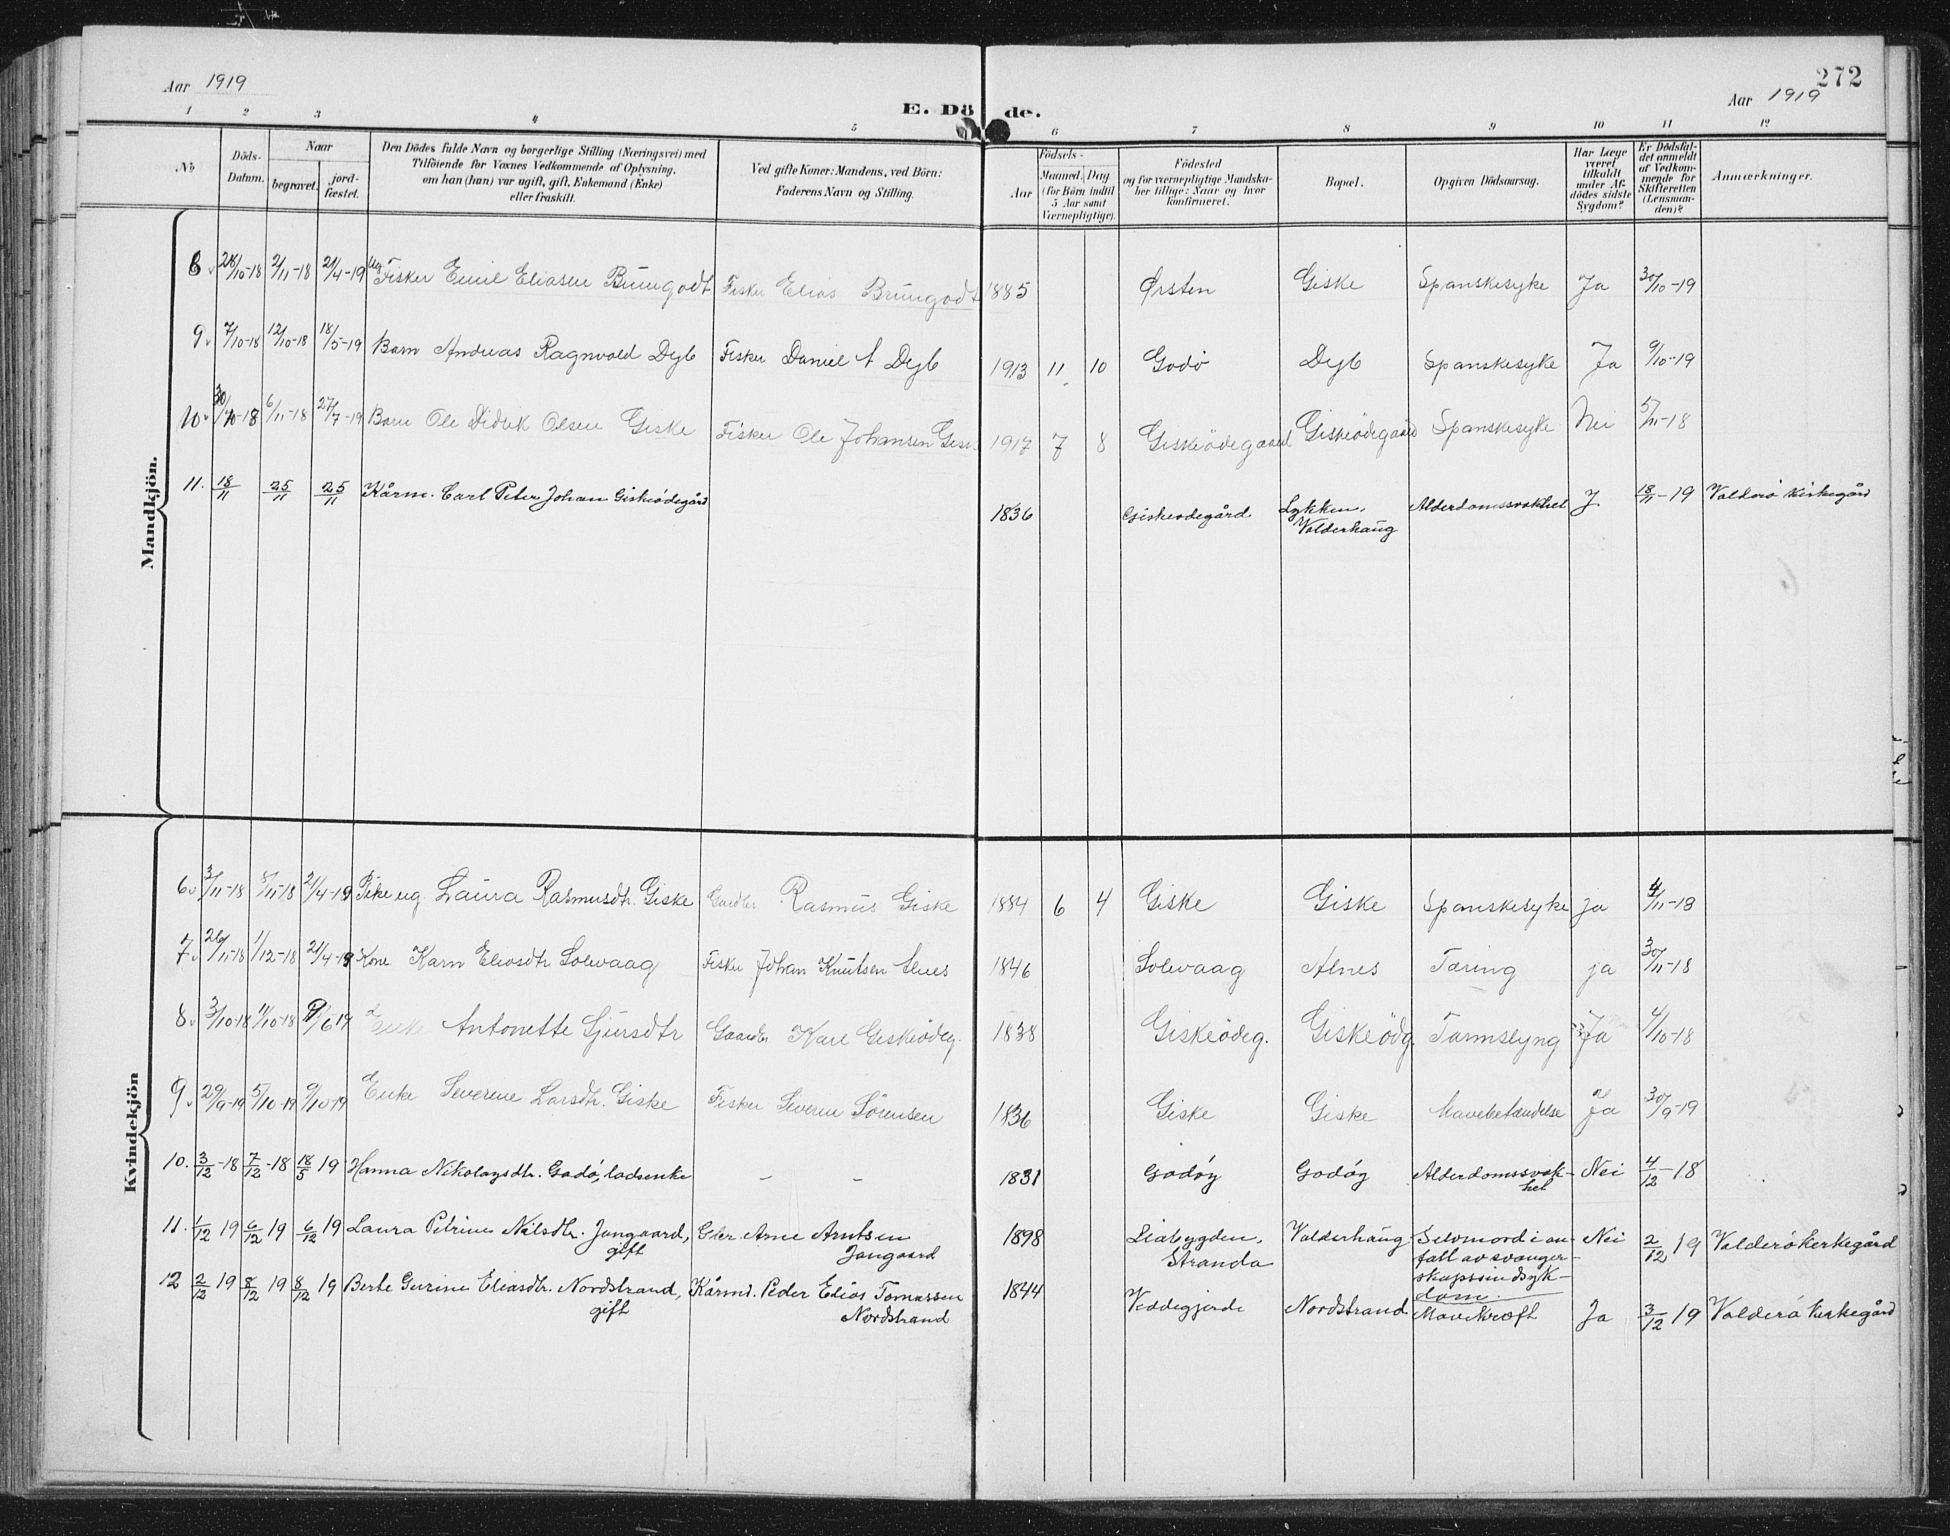 272
Aar 1919
Aar 1919
E. Dö de.
1 2 3 4 5 6 7 8 9 10 11 12
No
Döds-
Datum.
Naar
begravet.
jord-
fæstet.
Den Dödes fulde Navn og borgerlige Stilling (Næringsvei) med
Tilföiende for Voxnes Vedkommende af Oplysning,
om han (hun) var ugift, gift, Enkemand (Enke)
eller fraskilt.
Ved gifte Koner: Mandens, ved Börn:
Faderens Navn og Stilling.
Födsels-
Aar
Maaned. Dag
(for Börn indtil
5 Aar samt
Værnepligtige).
Födested
og for værnepligtige Mandska-
ber tillige: Naar og hvor
konfirmeret.
Bopæl.
Opgiven Dödsaarsag.
Har Læge
været
tilkaldt
under Af-
dödes sidste
Sygdom?
Er Dödsfal-
det anmeldt
af Vedkom-
mende for
Skifteretten
(Lensman-
den)?
Anmærkninger.
Mandkjön.
8 28/10-18 2/11-18 21/4-19 Ug Fisker Emil Eliasen Brungodt Fisker Elias Brungodt 1885 Ørsten Giske Spanskesyke Ja 30/10-19
9 7/10-18 12/10-18 18/5-19 Barn Andreas Ragnvald Dyb Fisker Daniel A Dyb 1913 11 10 Godø Dyb Spanskesyke Ja 9/10-19
10 30/10-18 6/11-18 27/7-19 Barn Ole Didrik Olsen Giske Fisker Ole Johansen 1917 7 8 Giskeödegaard Giskeödegaard Spanskesyke Nei 5/11-18
11. 18/11 25/11 25/11 Kårm. Carl Peter Johan Giskeødegård 1836 Giskeødegård Lykken, Alderdomssvakhet J. 18/11-19 Valderø kirkegård
Valderhaug
Kvindekjön
6 3/11-18 8/11-18 21/4-19 Pike ug Laura Rasmusdtr. Giske Gardbr Rasmus Giske 1884 6 4 Giske Giske Spanskesyke ja 4/11-18
7 26/11-18 1/12-18 21/4-19 Kone Karn Eliasdtr Solevaag Fisker Johan Knutsen Alnes 1846 Solevaag Alnes Tæring ja 30/11-18
8 3/10-18 11/10-18 /6 19 Enke Antonette Sjursdtr Gaardbr Karl Giskeödeg. 1838 Giskeödeg. Giskeödg. Tarmslyng Ja 4/10-18
9 29/9-19 5/10-19 9/10-19 Enke Severine Larsdtr. Giske Fisker Severin Sörensen 1836 Giske Giske Mavebetændelse Ja 30/9-19
10. 3/12-18 7/12-18 18/5 19 Hanna Nikolaysdtr. Godö, ladsenke – – 1831 Godöy Godöy Alderdomssvak- Nei 4/12-18
het
11. 1/12 19 6/12 19 6/12 19 Laura Petrine Nilsdtr. Jangaard, Gbr. Arne Arntsen 1898 Liabygden, Valderhaug Selvmord i an- Nei 2/12 19 Valderö kirkegård
gift Jangaard Stranda fall av svanger-
skapssindsyk-
dom.
12 2/12 19 8/12 19 8/12 19 Berte Gurine Eliasdtr. Nordstrand, Kårmd. Peder Elias Tomassen 1844 Veddegjerde Nordstrand Mavekræft Ja 3/12 19 Valderö kirkegård
gift Nordstrand